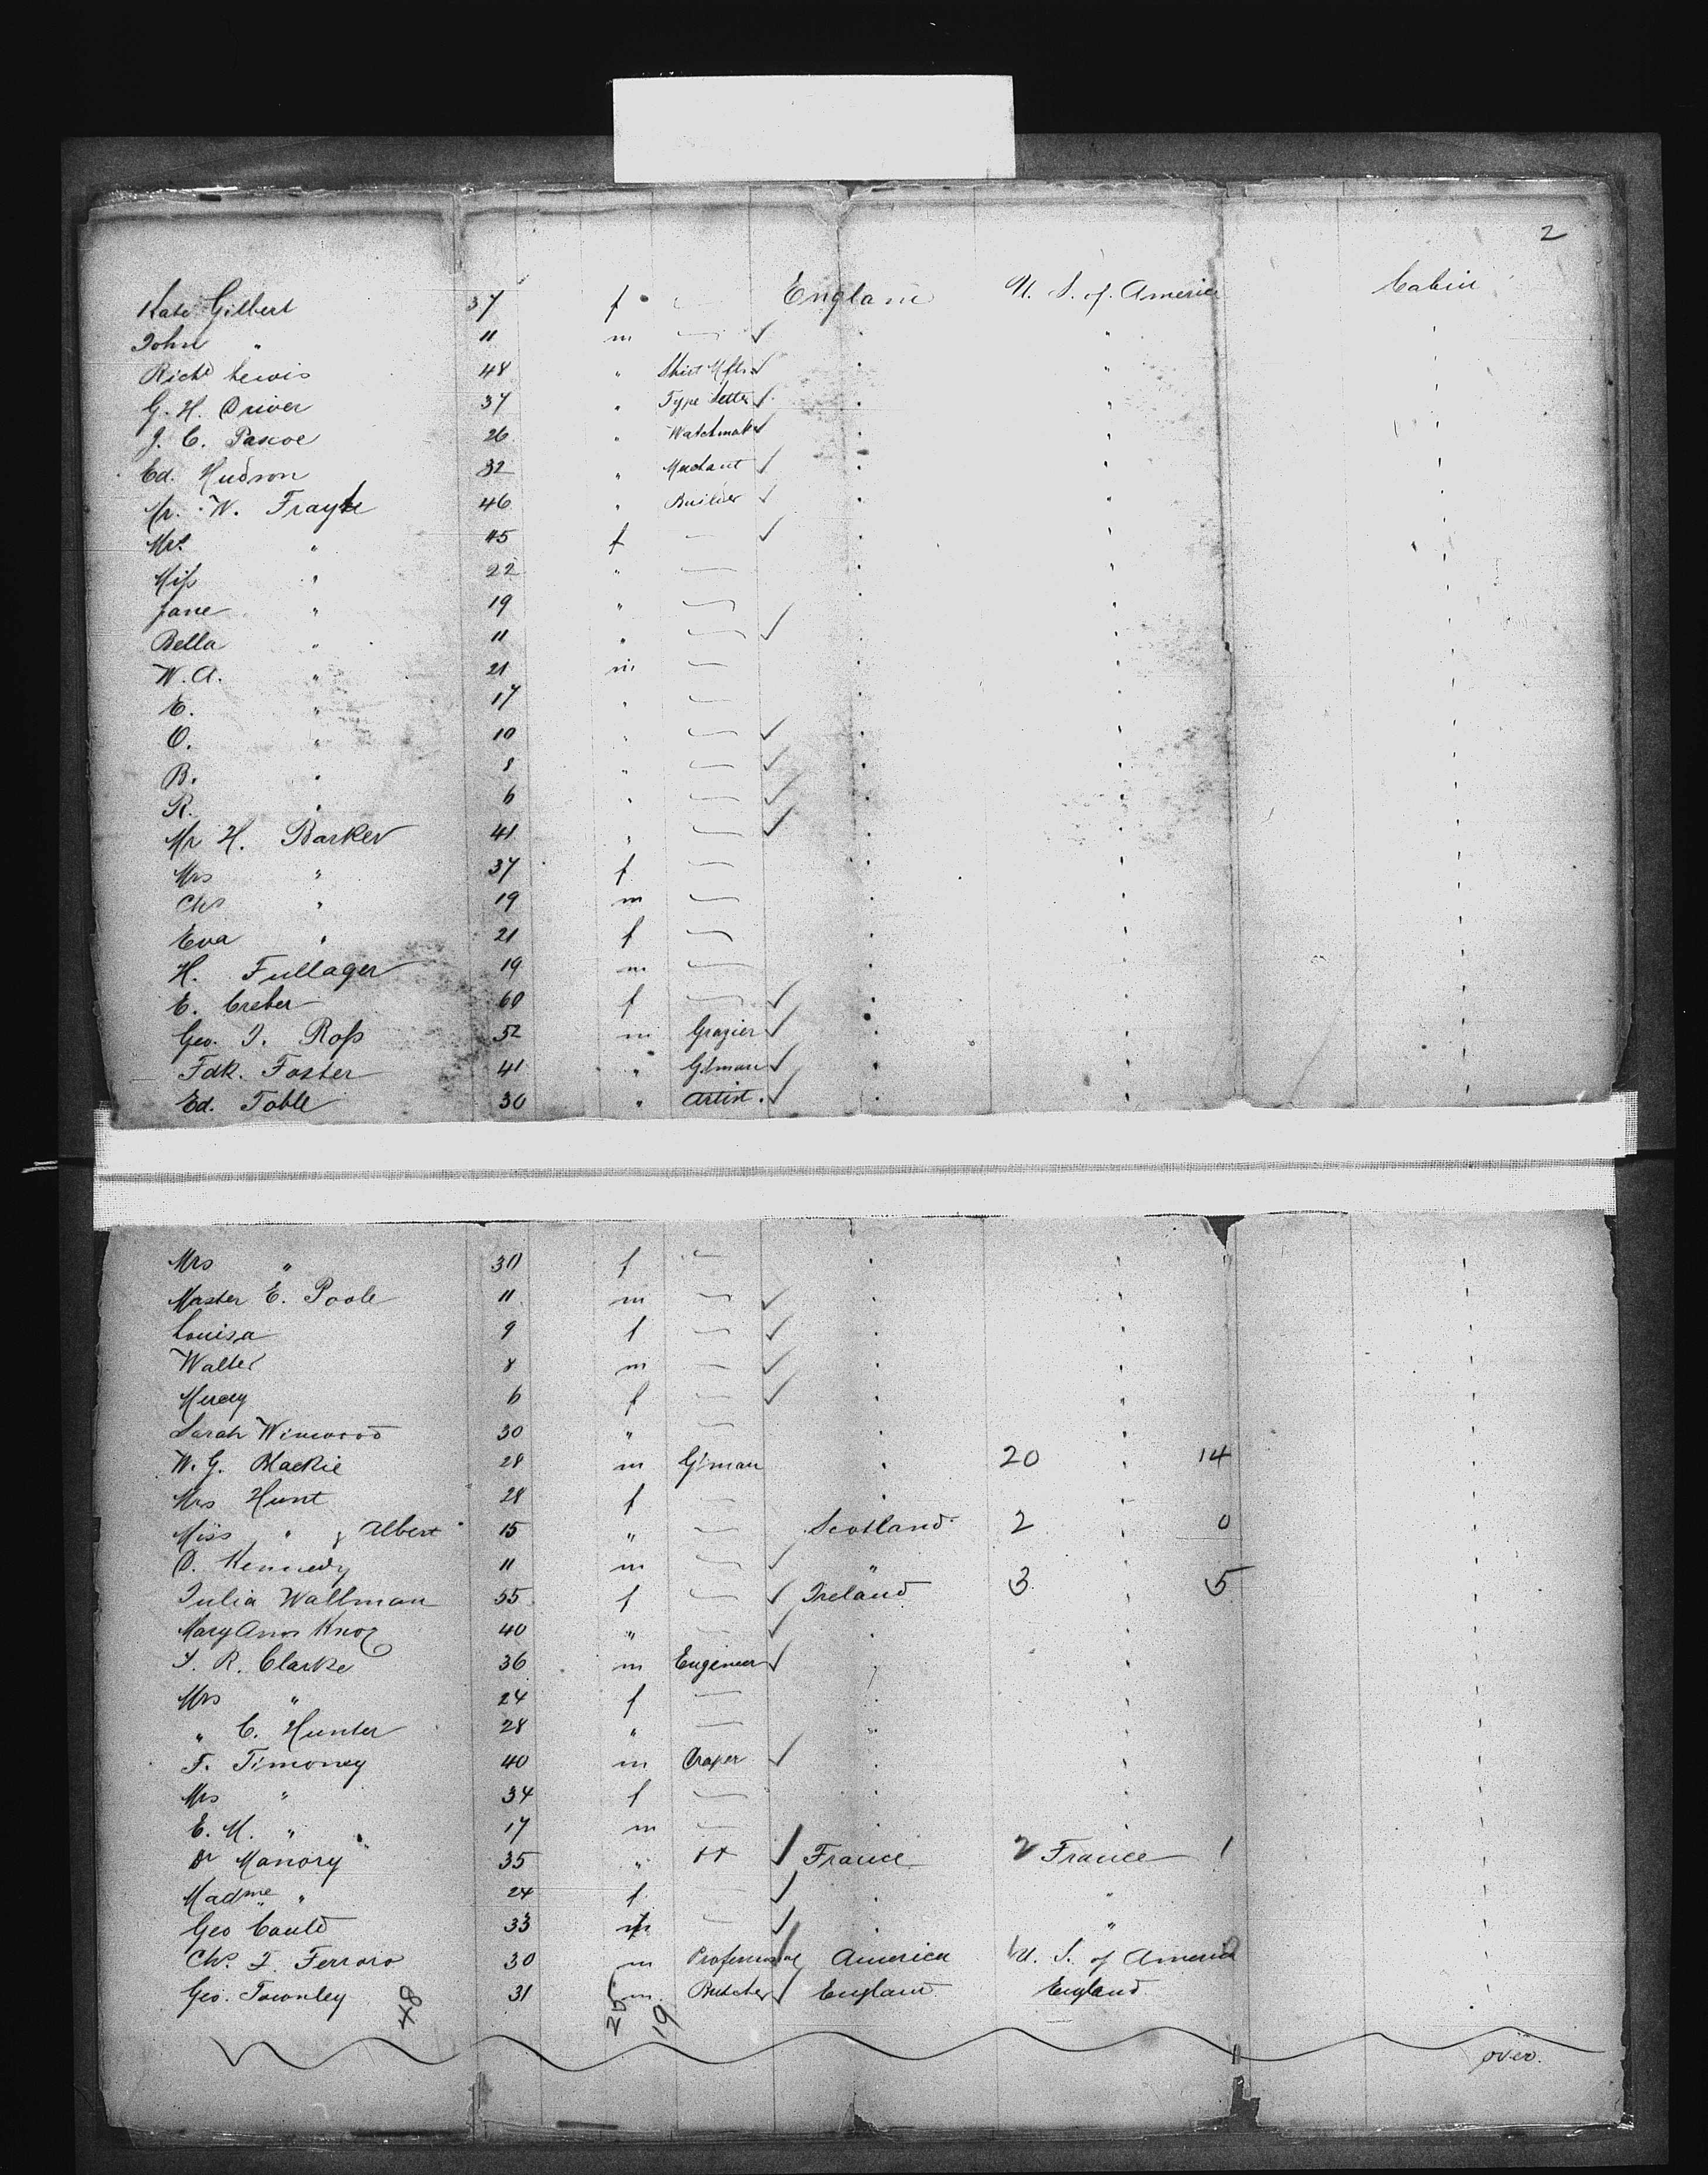 2
Kate Gilbert 37 f England U. S. of America Cabin
John " 11 m
Richd Lewis 48 " Shirt Mfr
G. H. Driver 37 " Type Setter
J. C. Pascoe 26 " Watchmaker
Ed. Hudson 32 "
Mr. W. Frayte 46 " Builder
Mrs " 45 f
Miss " 22 "
Jane " 19 "
Bella " 11 "
W. A. " 21 m
E. " 17 "
O. " 10 "
B. " 8 "
R. " 6 "
Mr H. Barker 41 "
Mrs " 37 f
Chs " 19 m
Eva " 21 f
H. Fullager 19 m
E. Creber 60 f
Geo. J. Ross 52 m Grazier
Fdk. Foster 41 " G'man
Ed. Toble 30 " Artist.
Mrs " 30 f
Master E. Poole 11 m
Louisa 9 f
Walter 8 m
6 f
Sarah Winwood 30 "
W. G. Blackie 28 m G'man 20 14
Mrs Hunt 28 f
Miss " & Albert 15 " Scotland 2 0
D. Kennedy 11 m "
Julia Wallman 55 f Ireland 3 5
Mary Ann Knox 40 "
J. R. Clarke 36 m Engineer
Mrs " 24 f
" C. Hunter 28 "
F. Timoney 40 m Draper
Mrs " 34 f
E. M. " 17 m
Dr Manory 35 " France 2 France 1
Madme " 24 f "
Geo Cauld 33 m "
Chs. I. Ferraro 30 m America U. S. of America
Geo. Townley 31 m Butcher England England
48 19
over.